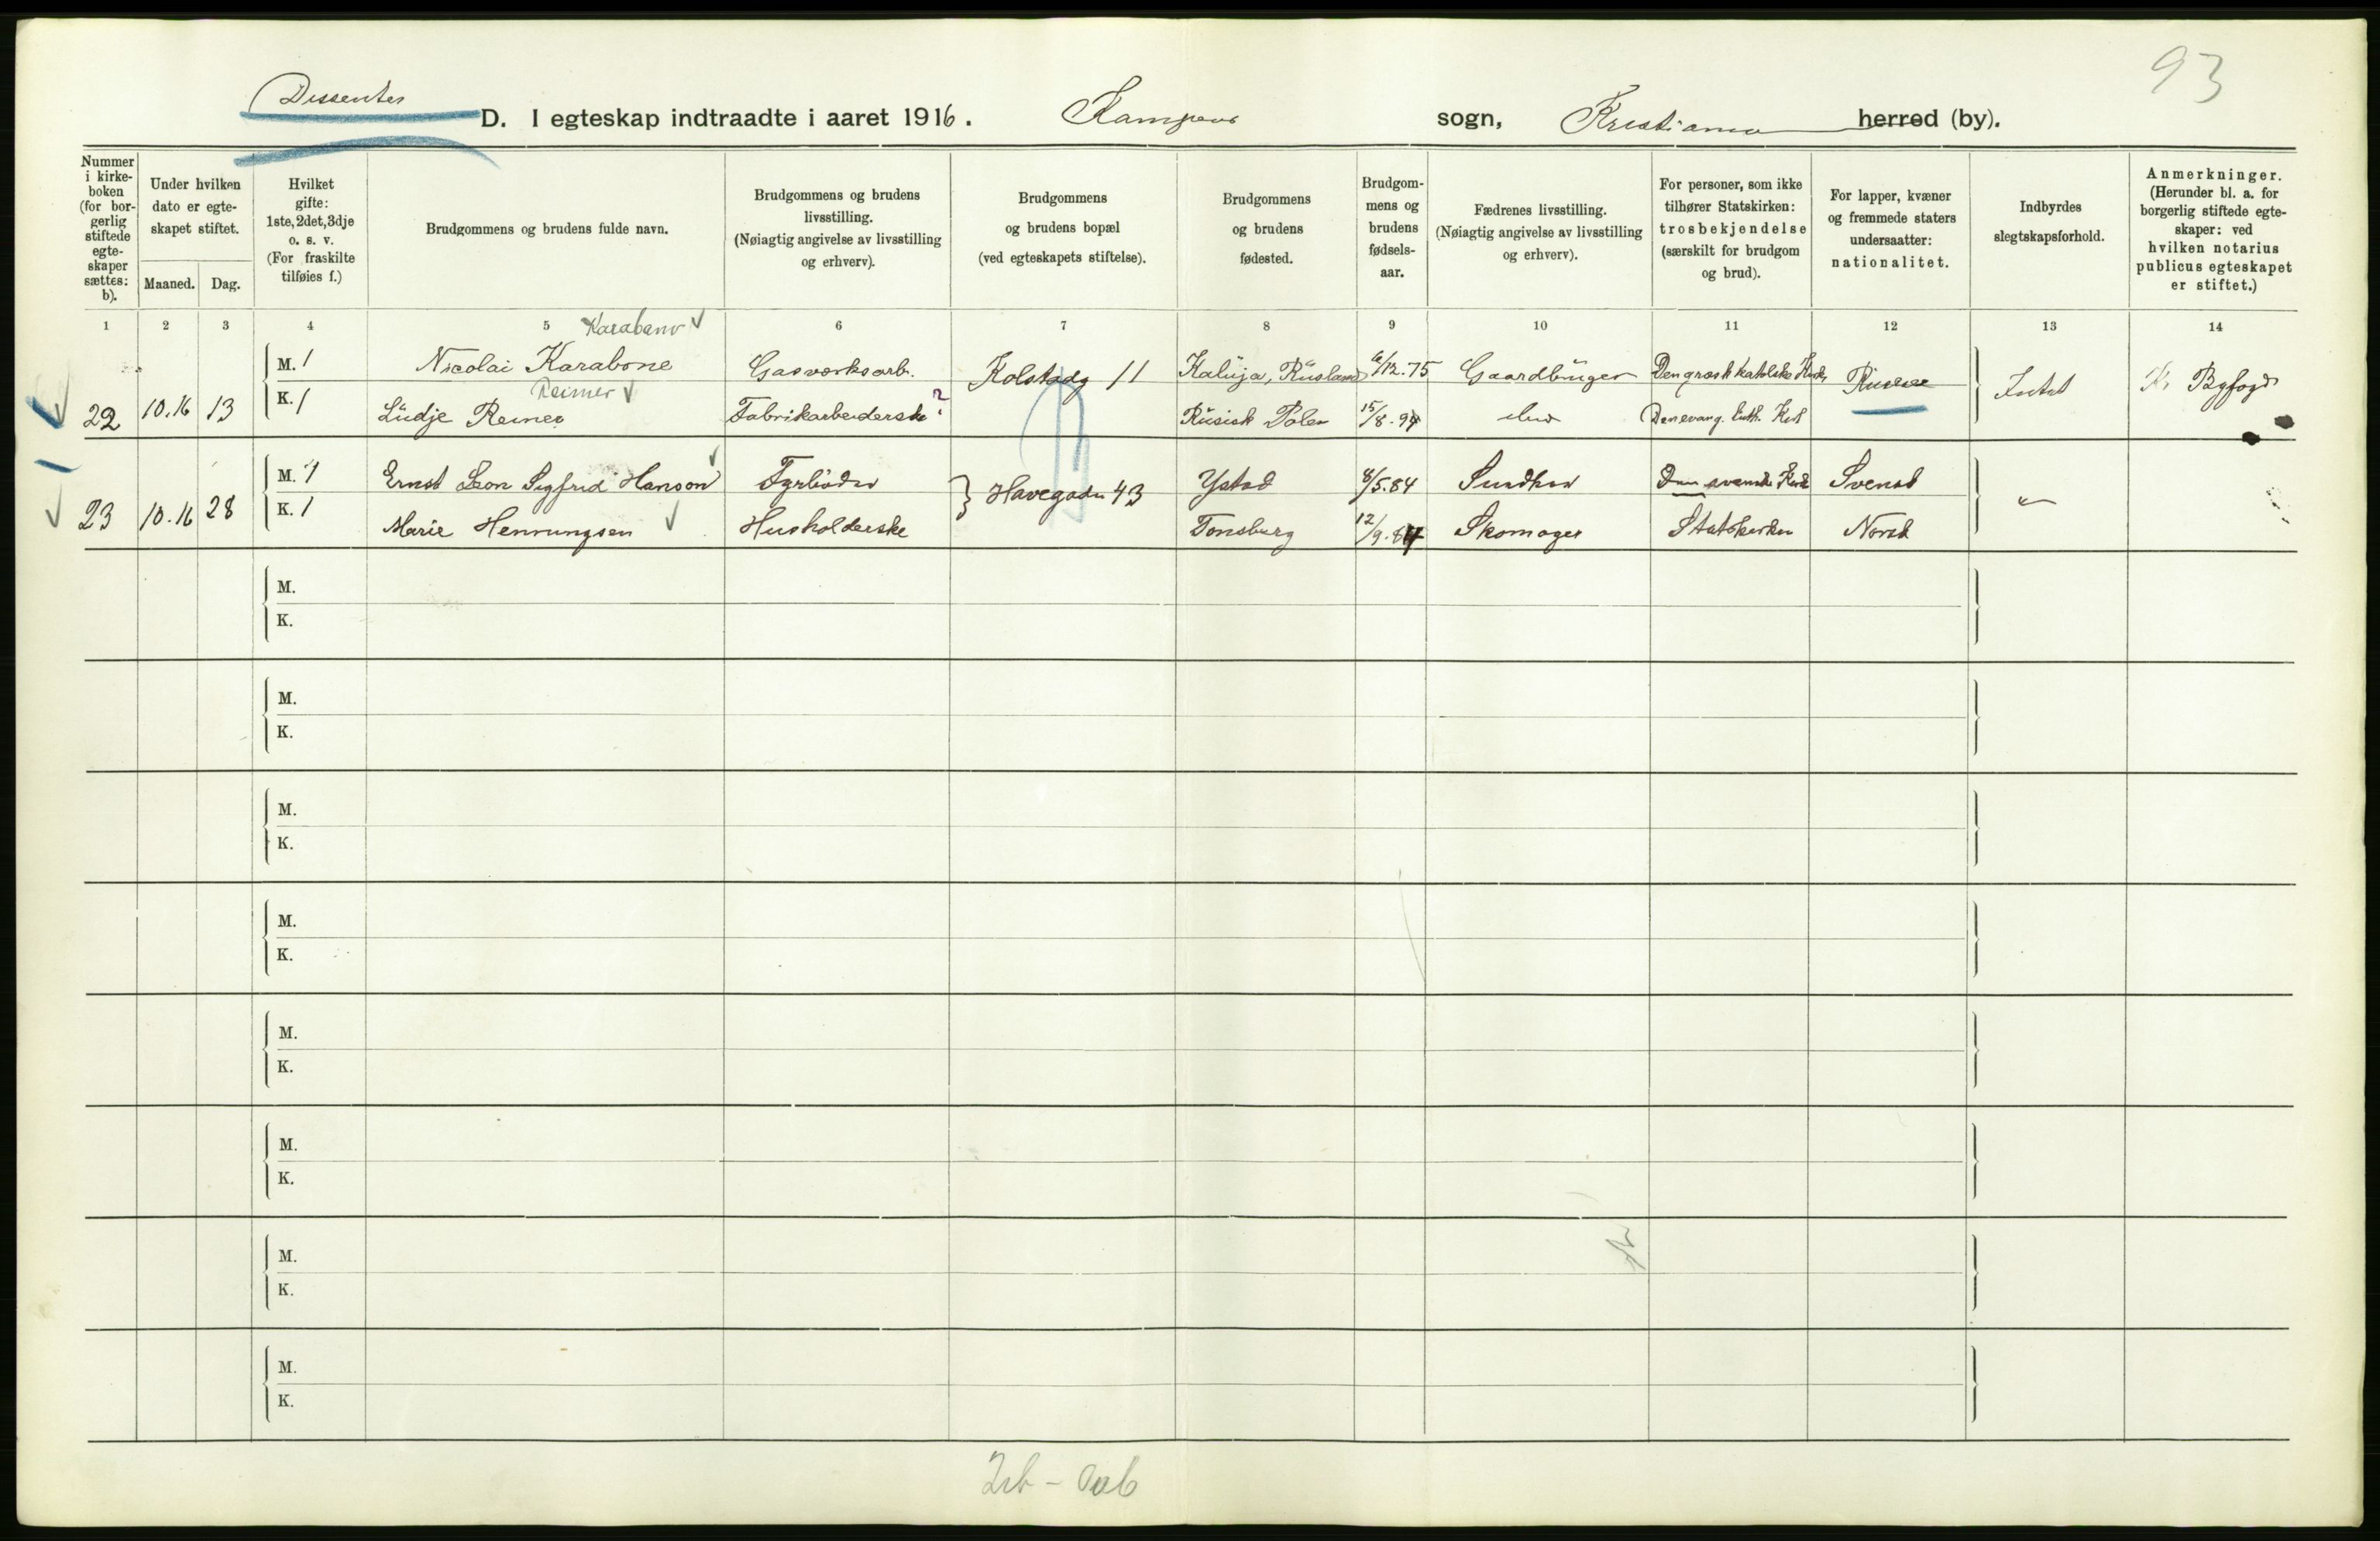 93
Dissenter
D. I egteskap indtraadte i aaret 1916. Kampens sogn, Kristiania herred (by).
Nummer i kirkeboken (for borgerlig stiftede egteskaper sættes: b).
Under hvilken dato er egteskapet stiftet.
Maaned. Dag.
Hvilket gifte: 1ste, 2det, 3dje o. s. v. (For fraskilte tilføies f.)
Brudgommens og brudens fulde navn.
Brudgommens og brudens livsstilling. (Nøiagtig angivelse av livsstilling og erhverv).
Brudgommens og brudens bopæl (ved egteskapets stiftelse).
Brudgommens og brudens fødested.
Brudgommens og brudens fødselsaar.
Fædrenes livsstilling. (Nøiagtig angivelse av livsstilling og erhverv).
For personer, som ikke tilhører Statskirken: trosbekjendelse (særskilt for brudgom og brud).
For lapper, kvæner og fremmede staters undersaatter: nationalitet.
Indbyrdes slegtskapsforhold.
Anmerkninger. (Herunder bl. a. for borgerlig stiftede egteskaper: ved hvilken notarius publicus egteskapet er stiftet.)
1 2 3 4 5 6 7 8 9 10 11 12 13 14
Karabanv
M. 1 Nicolai Karabone Gasverksarb. Kolstadg 11 Kalüja, Rüsland 6/12.75 Gaardbruger Den græsk katolske Kirke Russer Intet Kr Byfogd
Reimer
22 10.16 13 K. 1 Lüdje Reiner Fabrikarbeiderske? Rüsisk Polen 15/8.94 Den evang. luth. Kirk
M. 1 Ernst Leon Sigfrid Hanson Fyrbøder Havegaden 43 Ystad 8/5.84 Den svenske Kirke Svensk
23 10.16 28 K. 1 Marie Henningsen Husholderske Tonsberg 12/9.84 Skomager Statskirken Norsk
M.
K.
M.
K.
M.
K.
M.
K.
M.
K.
M.
K.
M.
K.
M.
K.